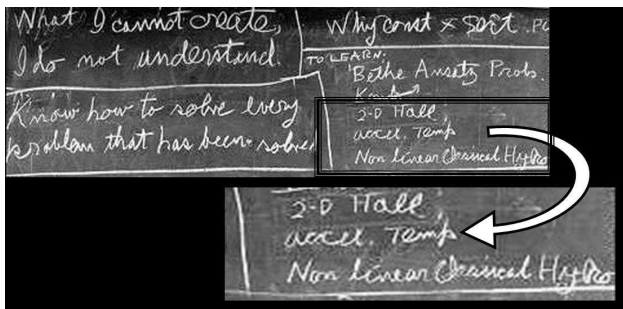 What I cannot create,
I do not understand.
Know how to solve every
problem that has been solved
Why const × sort . PO
TO LEARN.
Bethe Ansatz Probs.
Kondo
2-D Hall
accel. Temp
Non linear Classical Hydro
2-D Hall
accel. Temp
Non linear Classical Hydro